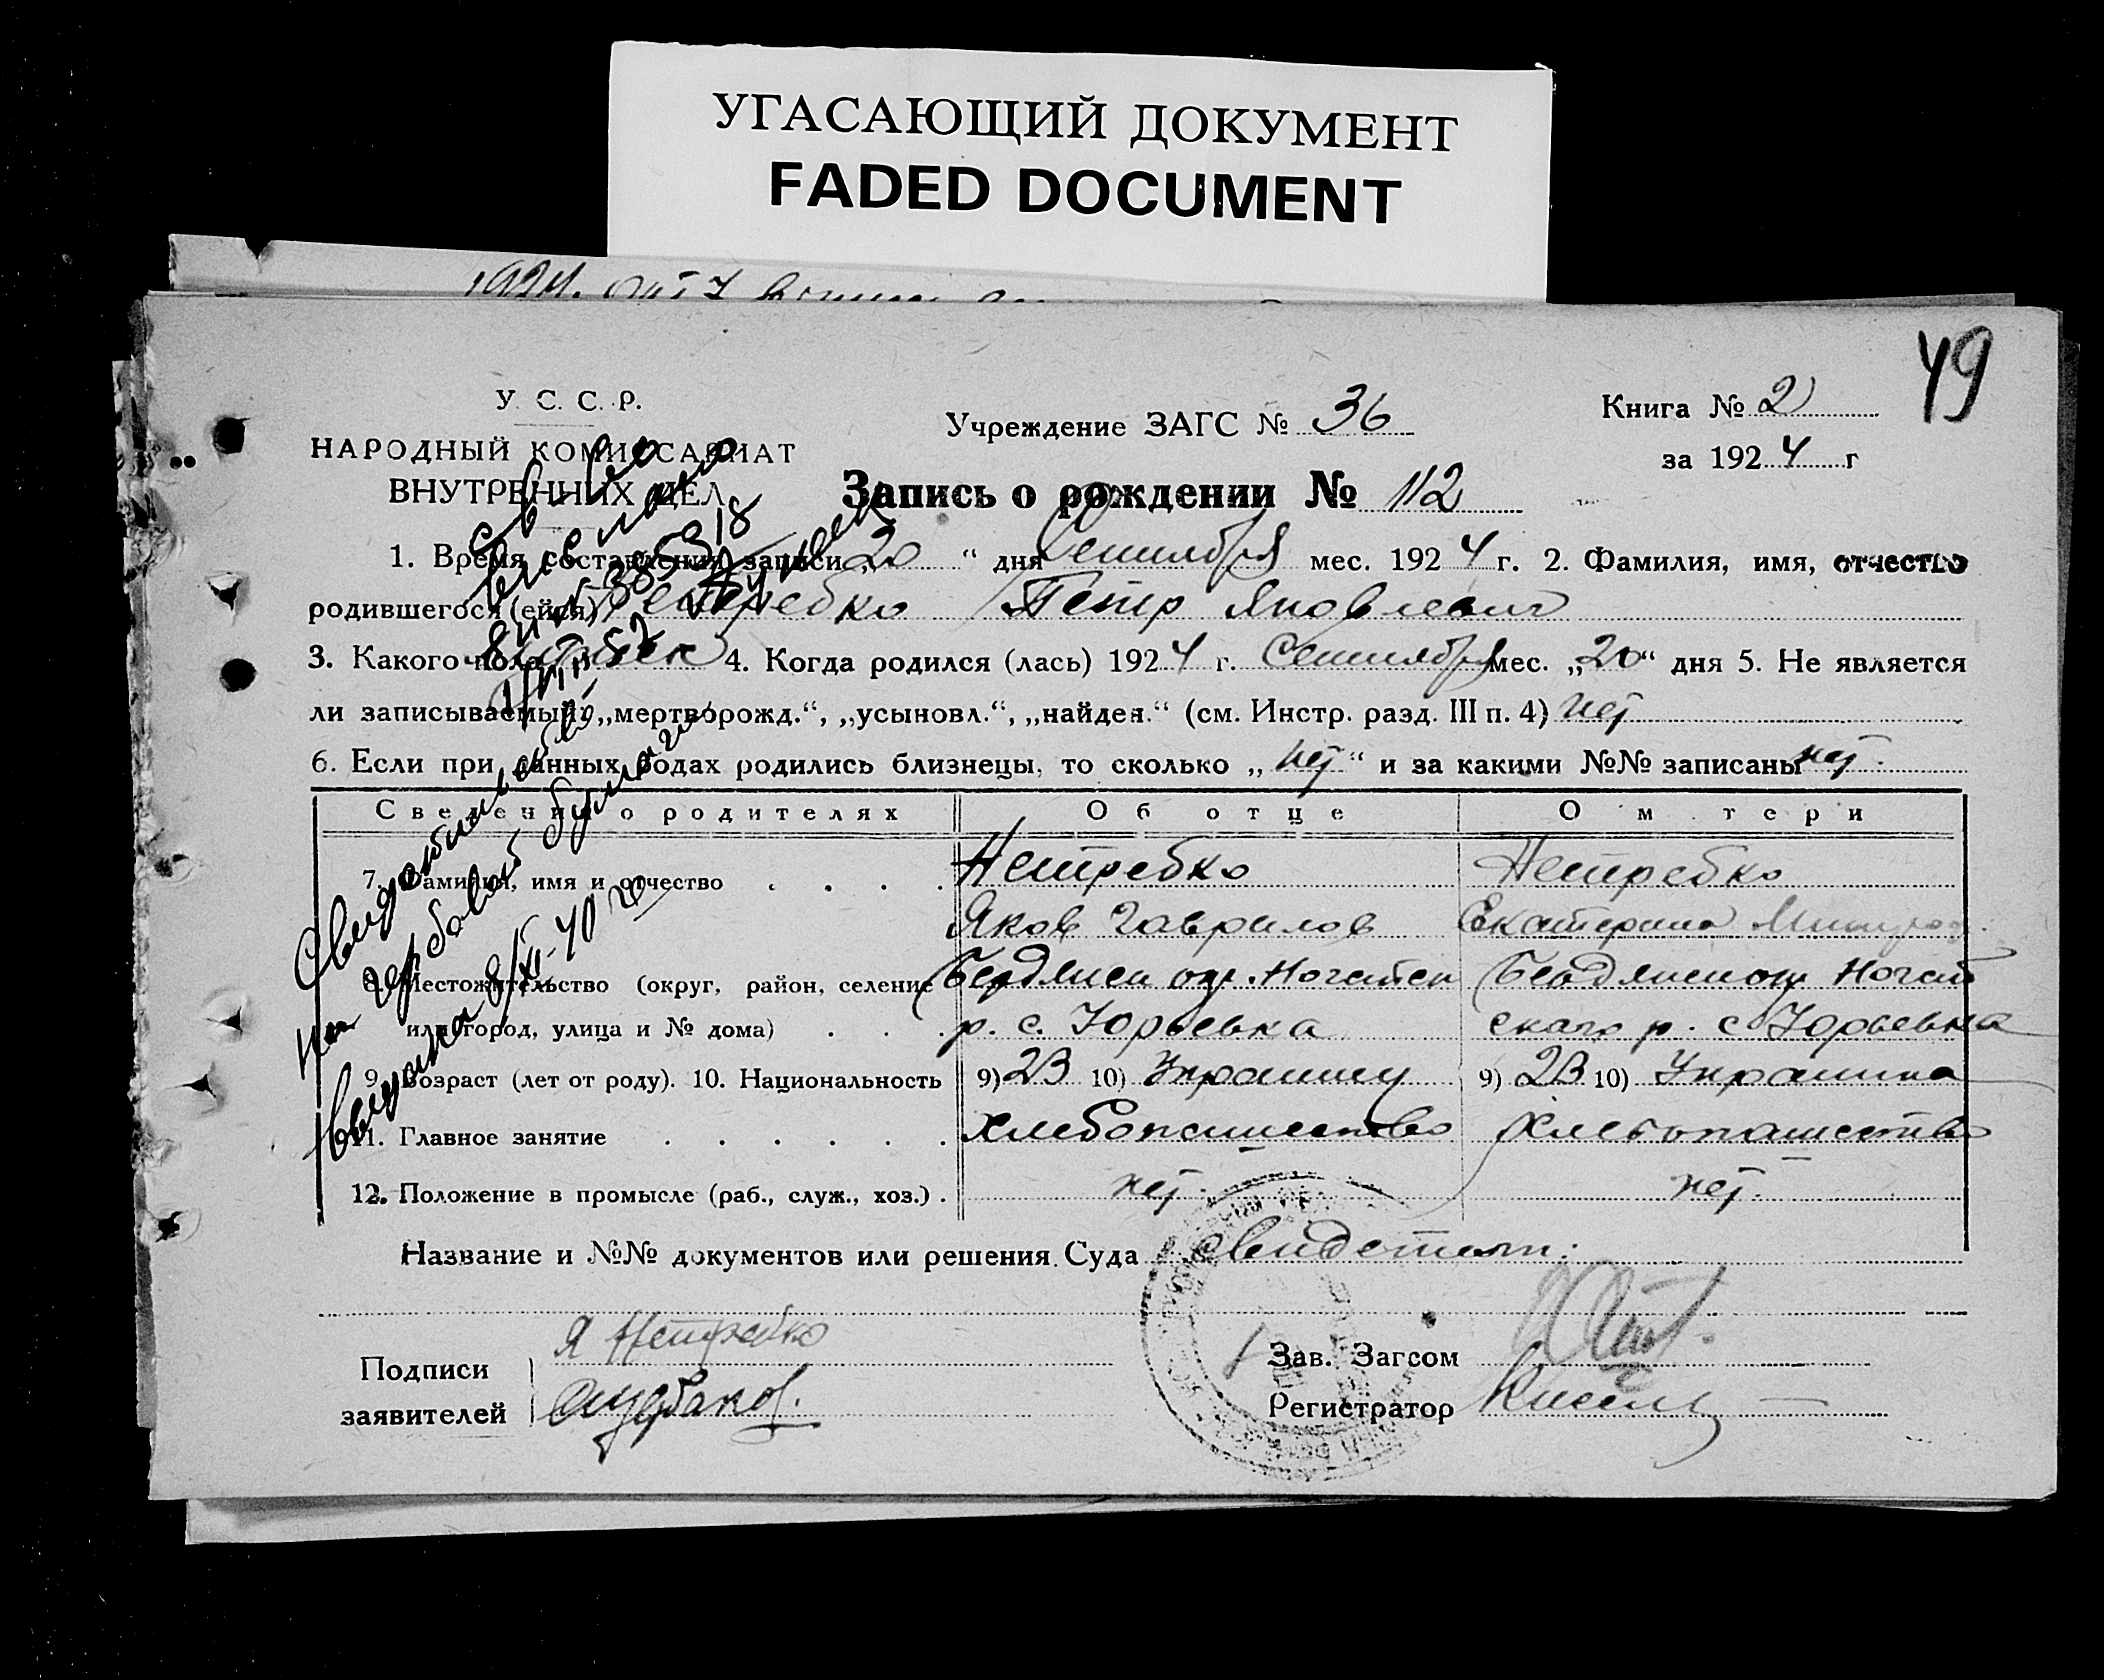 УГАСАЮЩИЙ ДОКУМЕНТ
FADED DOCUMENT
49
У. С. С. Р.
НАРОДНЫЙ КОМИССАРИАТ
ВНУТРЕННИХ ДЕЛ
Учреждение ЗАГС № 36
Книга № 2
за 1924 г
Запись о рождении № 112
1. Время составления записи „20“ дня Сентября мес. 1924 г. 2. Фамилия, имя, отчество
родившегося (ейся) Нетребко Петр Яковлевич
3. Какого пола 4. Когда родился (лась) 1924 г. Сентября мес. „20“ дня 5. Не является
ли записываемый: „мертворожд.“, „усыновл.“, „найден.“ (см. Инстр. разд. III п. 4) нет
6. Если при данных родах родились близнецы, то сколько „нет“ и за какими №№ записаны нет.
Сведения о родителях Об отце О матери
7. Фамилия, имя и отчество . . . . Нетребко Нетребко
Яков Гаврилов Екатерина
8. Местожительство (округ, район, селение Бердянск окр. Ногайск Бердянск окр Ногай
или город, улица и № дома) . . . р. с. Юрьевка скаго р. с Юрьевка
9. Возраст (лет от роду). 10. Национальность 9) 23 10) Украинец 9) 23 10) Украинка
11. Главное занятие . . . . . . Хлебопашество Хлебопашество
12. Положение в промысле (раб., служ., хоз.) . нет. нет.
Название и №№ документов или решения Суда свидетели:
Подписи
заявителей
Я Нетребко
Зав. Загсом
Регистратор Кисель
Свидетельство
на гербовой бумаге
выдана 8/XI-40 г